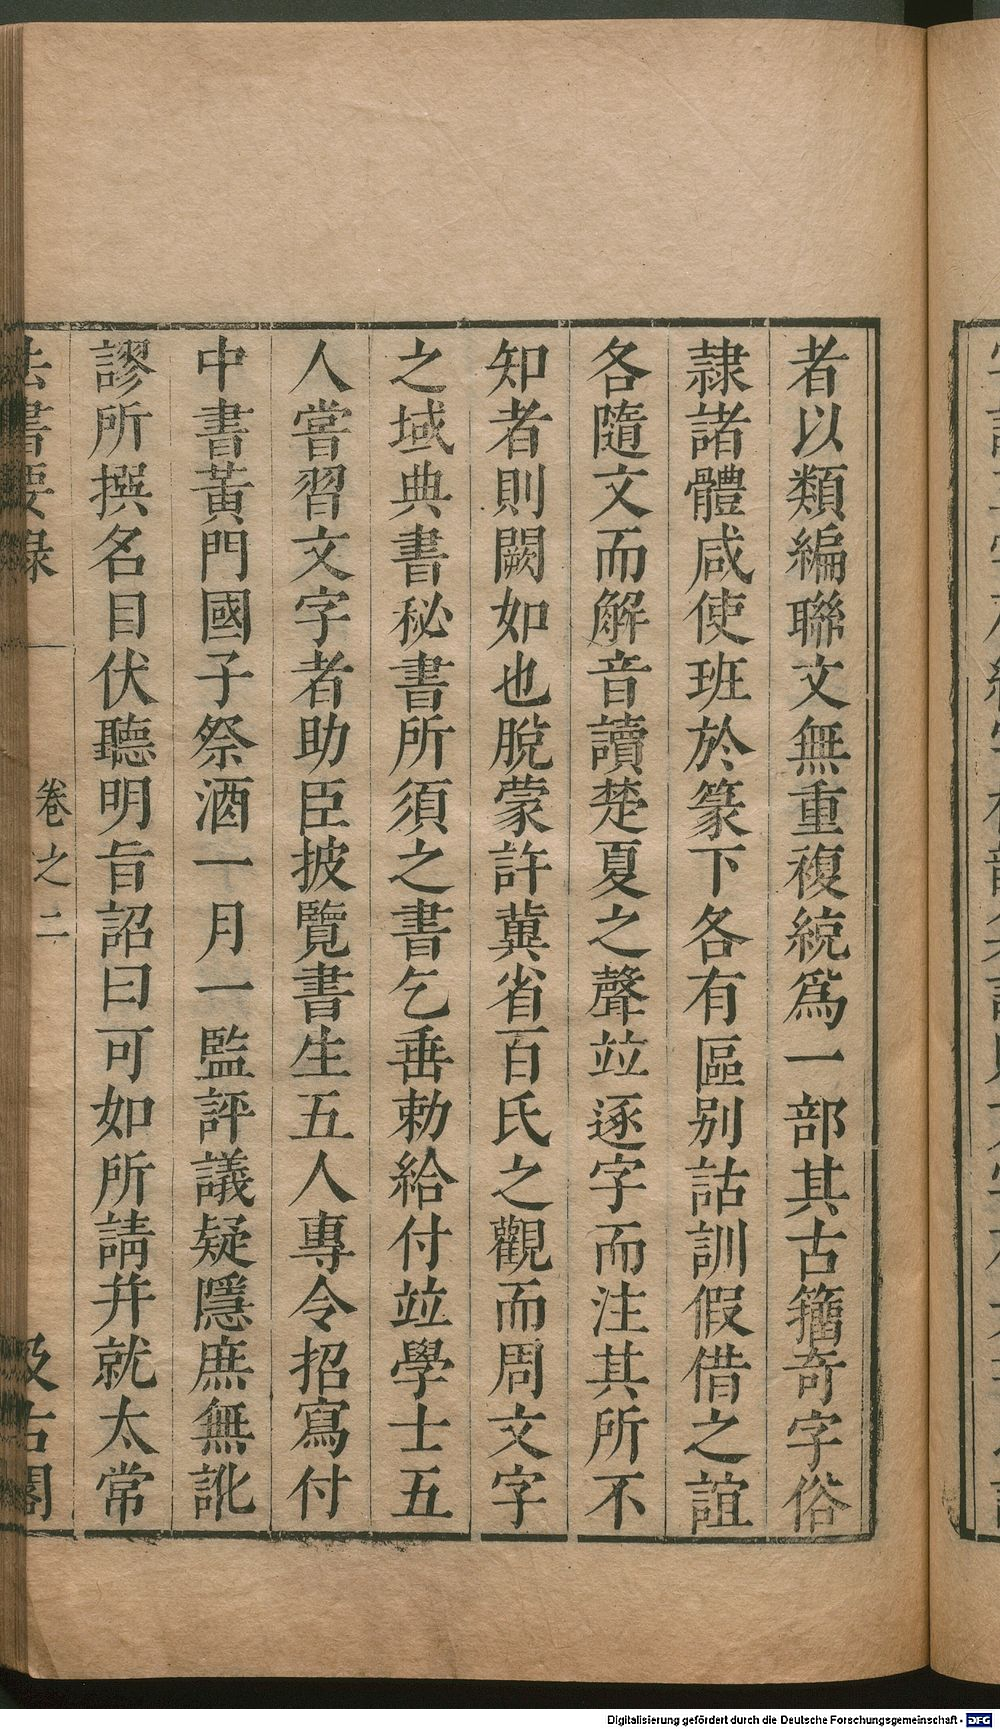 者以類編聯文無重複統爲一部其古籀奇字俗
隷諸體咸使班於篆下各有區别詁訓假借之誼
各隨文而解音讀楚夏之聲竝逐字而注其所不
知者則闕如也脫蒙許冀省百氏之觀而周文字
之域典書秘書所須之書乞垂勅給付竝學士五
人嘗習文字者助臣披覽書生五人專令招寫付
中書黃門國子祭酒一月一監評議疑隱庶無訛
謬所撰名目伏聽明旨詔曰可如所請并就太常
法書要錄 卷之二 汲古閣
Digitalisierung gefördert durch die Deutsche Forschungsgemeinschaft - DFG